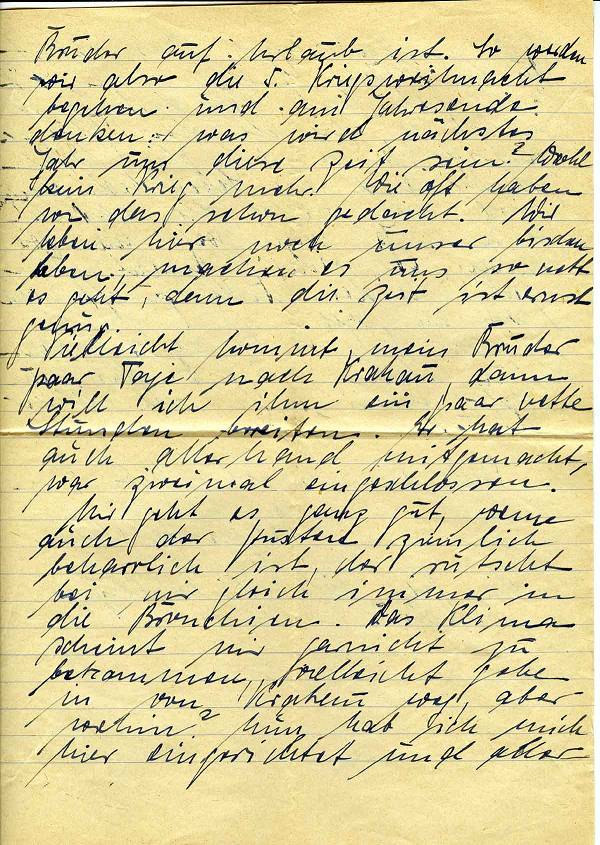 Bruder auf Urlaub ist. So werden
wir also die 5. Kriegsweihnacht
begehen und am Jahresende
denken: was wird nächstes
Jahr um diese Zeit sein? Wohl
kein Krieg mehr. Wie oft haben
wir das schon gedacht. Wir
leben hier noch unser bischen
Leben, machen es uns so nett
es geht, denn die Zeit ist ernst
genug.
Vielleicht kommt mein Bruder
paar Tage nach Krakau, dann
will ich ihm ein paar nette
Stunden bereiten. Er hat
auch allerhand mitgemacht,
war zweimal eingeschlossen.
Mir geht es ganz gut, wenn
auch der Husten ziemlich
beharrlich ist, der rutscht
bei mir gleich immer in
die Bronchien. Das Klima
scheint mir garnicht zu
bekommen, vielleicht gehe
ich von Krakau weg, aber
wohin? Nun hab ich mich
hier eingerichtet und aller